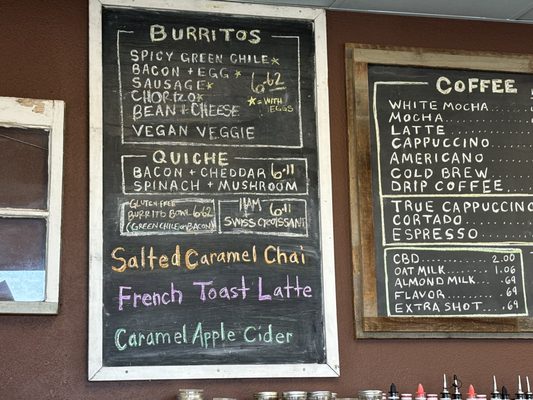 BURRITOS
SPICY GREEN CHILE*
BACON + EGG*
SAUSAGE*
CHORIZO*
BEAN + CHEESE
VEGAN VEGGIE
6.62
* = WITH EGGS
QUICHE
BACON + CHEDDAR 6.11
SPINACH + MUSHROOM
GLUTEN FREE
BURRITO BOWL 6.62
(GREEN CHILE OR BACON)
HAM 6.11
SWISS CROISSANT
SALTED CARAMEL CHAI
FRENCH TOAST LATTE
CARAMEL APPLE CIDER
COFFEE
WHITE MOCHA
MOCHA
LATTE
CAPPUCCINO
AMERICANO
COLD BREW
DRIP COFFEE
TRUE CAPPUCCINO
CORTADO
ESPRESSO
CBD 2.00
OAT MILK 1.06
ALMOND MILK .69
FLAVOR .69
EXTRA SHOT .69